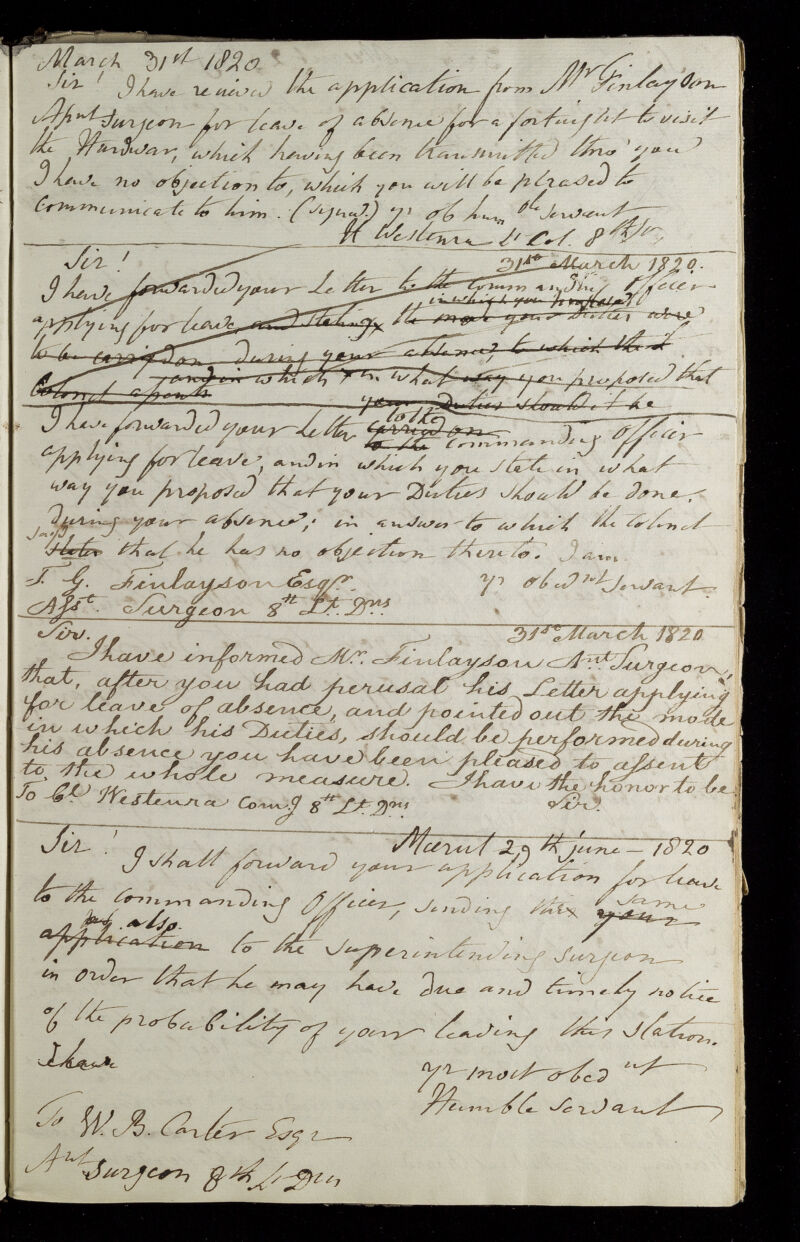 March 31st 1820
Sir! I have received the application from Mr Finlayson
Asnt Surgeon for leave of absence for a fortnight to visit
the Hurdwar, which having been transmitted thro' you
I have no objection to, which you will be pleased to
communicate to him. (signed) yr ob hum ble servant
H Westenra Lt Col. 8th
Sir! 31st March 1820.
I have forwarded your Letter to the Commanding Officer
in which you proposed
applying for leave, and stating the mode your Duties were
to be carried on during your absence, to which the
and in which in what way you proposed that
Colonel assents
your Duties should be
I have forwarded your Letter carried on to the
to the Commanding Officer
applying for leave, and in which you state in what
way you proposed that your Duties should be done.
during your absence; in answer to which the Colonel
says
states that he has no objection thereto. I am
yr obednt servant.
T. G. Finlayson Esqr.
Asst. Surgeon 8th Lt. Dns
Sir. 31st March 1820
I have informed Mr. Finlayson Asnt. Surgeon,
that, after you had perusal his Letter applying
for leave of absence, and pointed out the mode
in which his Duties, should be performed during
his absence you have been pleased to assent
to the whole measure. I have the honor to be
Sir.
To Cl. Westenra Comg 8th Lt. Dns
Sir! Mærut 29th June - 1820
I shall forward your application for leave
to the commanding Officer, sending the same
your
also.
application to the superintending surgeon
in order that he may have due and timely notice
of the probability of your leaving this station.
I have
yr most obed nt
Humble servant
To W. B. Carter Esqr
Asnt Surgeon 8th Lt Dns